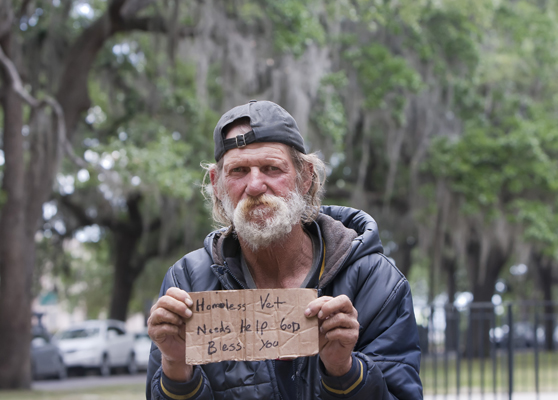 Homeless Vet
Needs Help GoD
Bless You